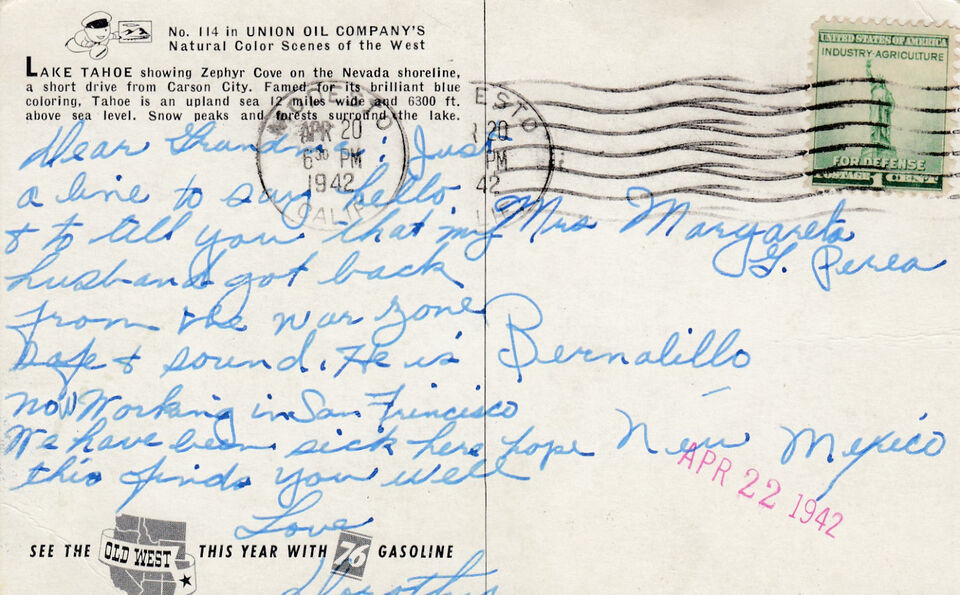 No. 114 in UNION OIL COMPANY'S
Natural Color Scenes of the West
LAKE TAHOE showing Zephyr Cove on the Nevada shoreline,
a short drive from Carson City. Famed for its brilliant blue
coloring, Tahoe is an upland sea 12 miles wide and 6300 ft.
above sea level. Snow peaks and forests surround the lake.
Dear Grandma: Just
a line to say hello
& to till you that my
husband got back
from the war zone
Safe & sound. He is
now Working in San Francisco
We have been sick here hope
this finds you well
Love
Dorothy
SEE THE OLD WEST THIS YEAR WITH 76 GASOLINE
MODESTO
APR 20
6 30 PM
1942
CALIF.
ESTO
20
PM
42
UNITED STATES OF AMERICA
INDUSTRY·AGRICULTURE
FOR DEFENSE
POSTAGE 1 CENT
Mrs Margareta
G. Perea
Bernalillo
New Mexico
APR 22 1942